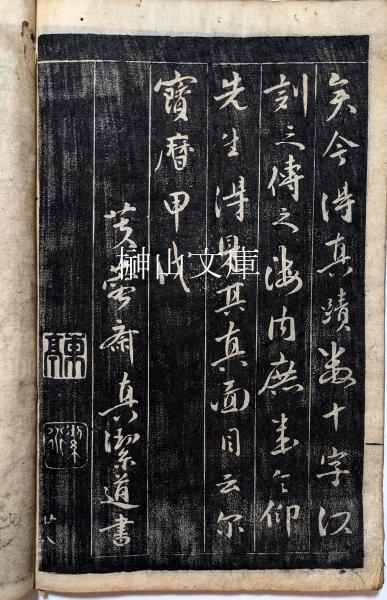 矣今得真蹟数十字以
刻之傳之海内庶幾今仰
先生得見其真面目云尔
寶曆甲戌
芙蓉齋真潔道書
東亭
廿八
榊山文庫